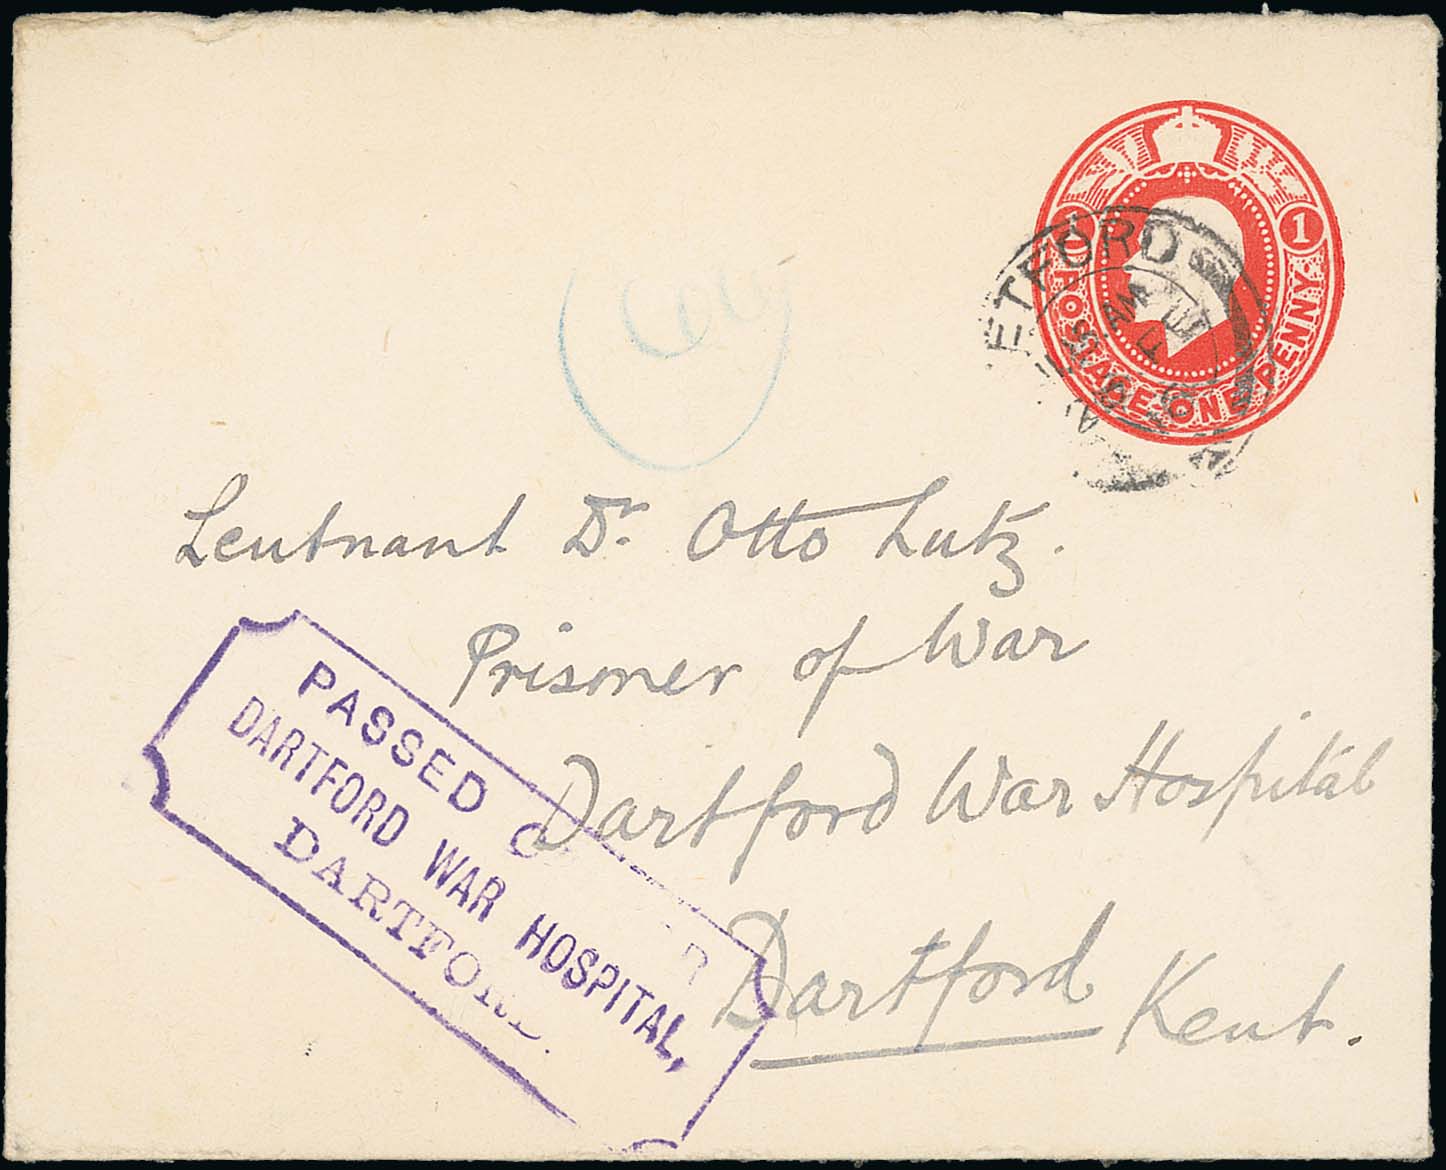 1 1
POSTAGE. ONE PENNY.
ETFORD
AM
Leutnant Dr. Otto Lutz.
Prisoner of War
Dartford War Hospital
Dartford
Kent.
PASSED
DARTFORD WAR HOSPITAL,
DARTFORD.